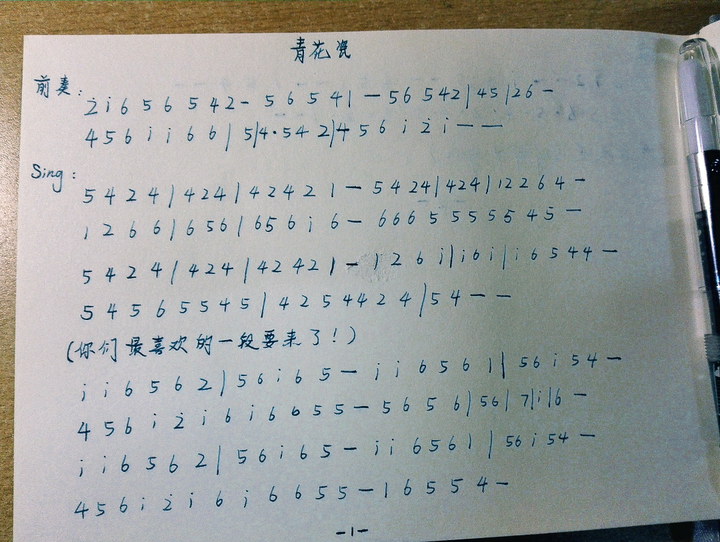 青花瓷
前奏:
2̇ i 6 5 6 5 4 2 - 5 6 5 4 1 — 5 6 5 4 2 | 4 5 | 2 6 —
4 5 6 i i 6 6 | 5 | 4 · 5 4 2 | 4 5 6 i 2̇ i — —
Sing:
5 4 2 4 | 4 2 4 | 4 2 4 2 1 — 5 4 2 4 | 4 2 4 | 1 2 2 6 4 —
1 2 6 6 | 6 5 6 | 6 5 6 i 6 — 6 6 6 5 5 5 5 5 4 5 —
5 4 2 4 | 4 2 4 | 4 2 4 2 1 - 1 2 6 i | i 6 i | i 6 5 4 4 —
5 4 5 6 5 5 4 5 | 4 2 5 4 4 2 4 | 5 4 — —
(你们最喜欢的一段要来了!)
i i 6 5 6 2 | 5 6 i 6 5 — i i 6 5 6 1 | 5 6 i 5 4 —
4 5 6 i 2̇ i 6 i 6 6 5 5 — 5 6 5 6 | 5 6 | 7 | i | 6 —
i i 6 5 6 2 | 5 6 i 6 5 — i i 6 5 6 1 | 5 6 i 5 4 —
4 5 6 i 2̇ i 6 i 6 6 5 5 — 1 6 5 5 4 —
-1-